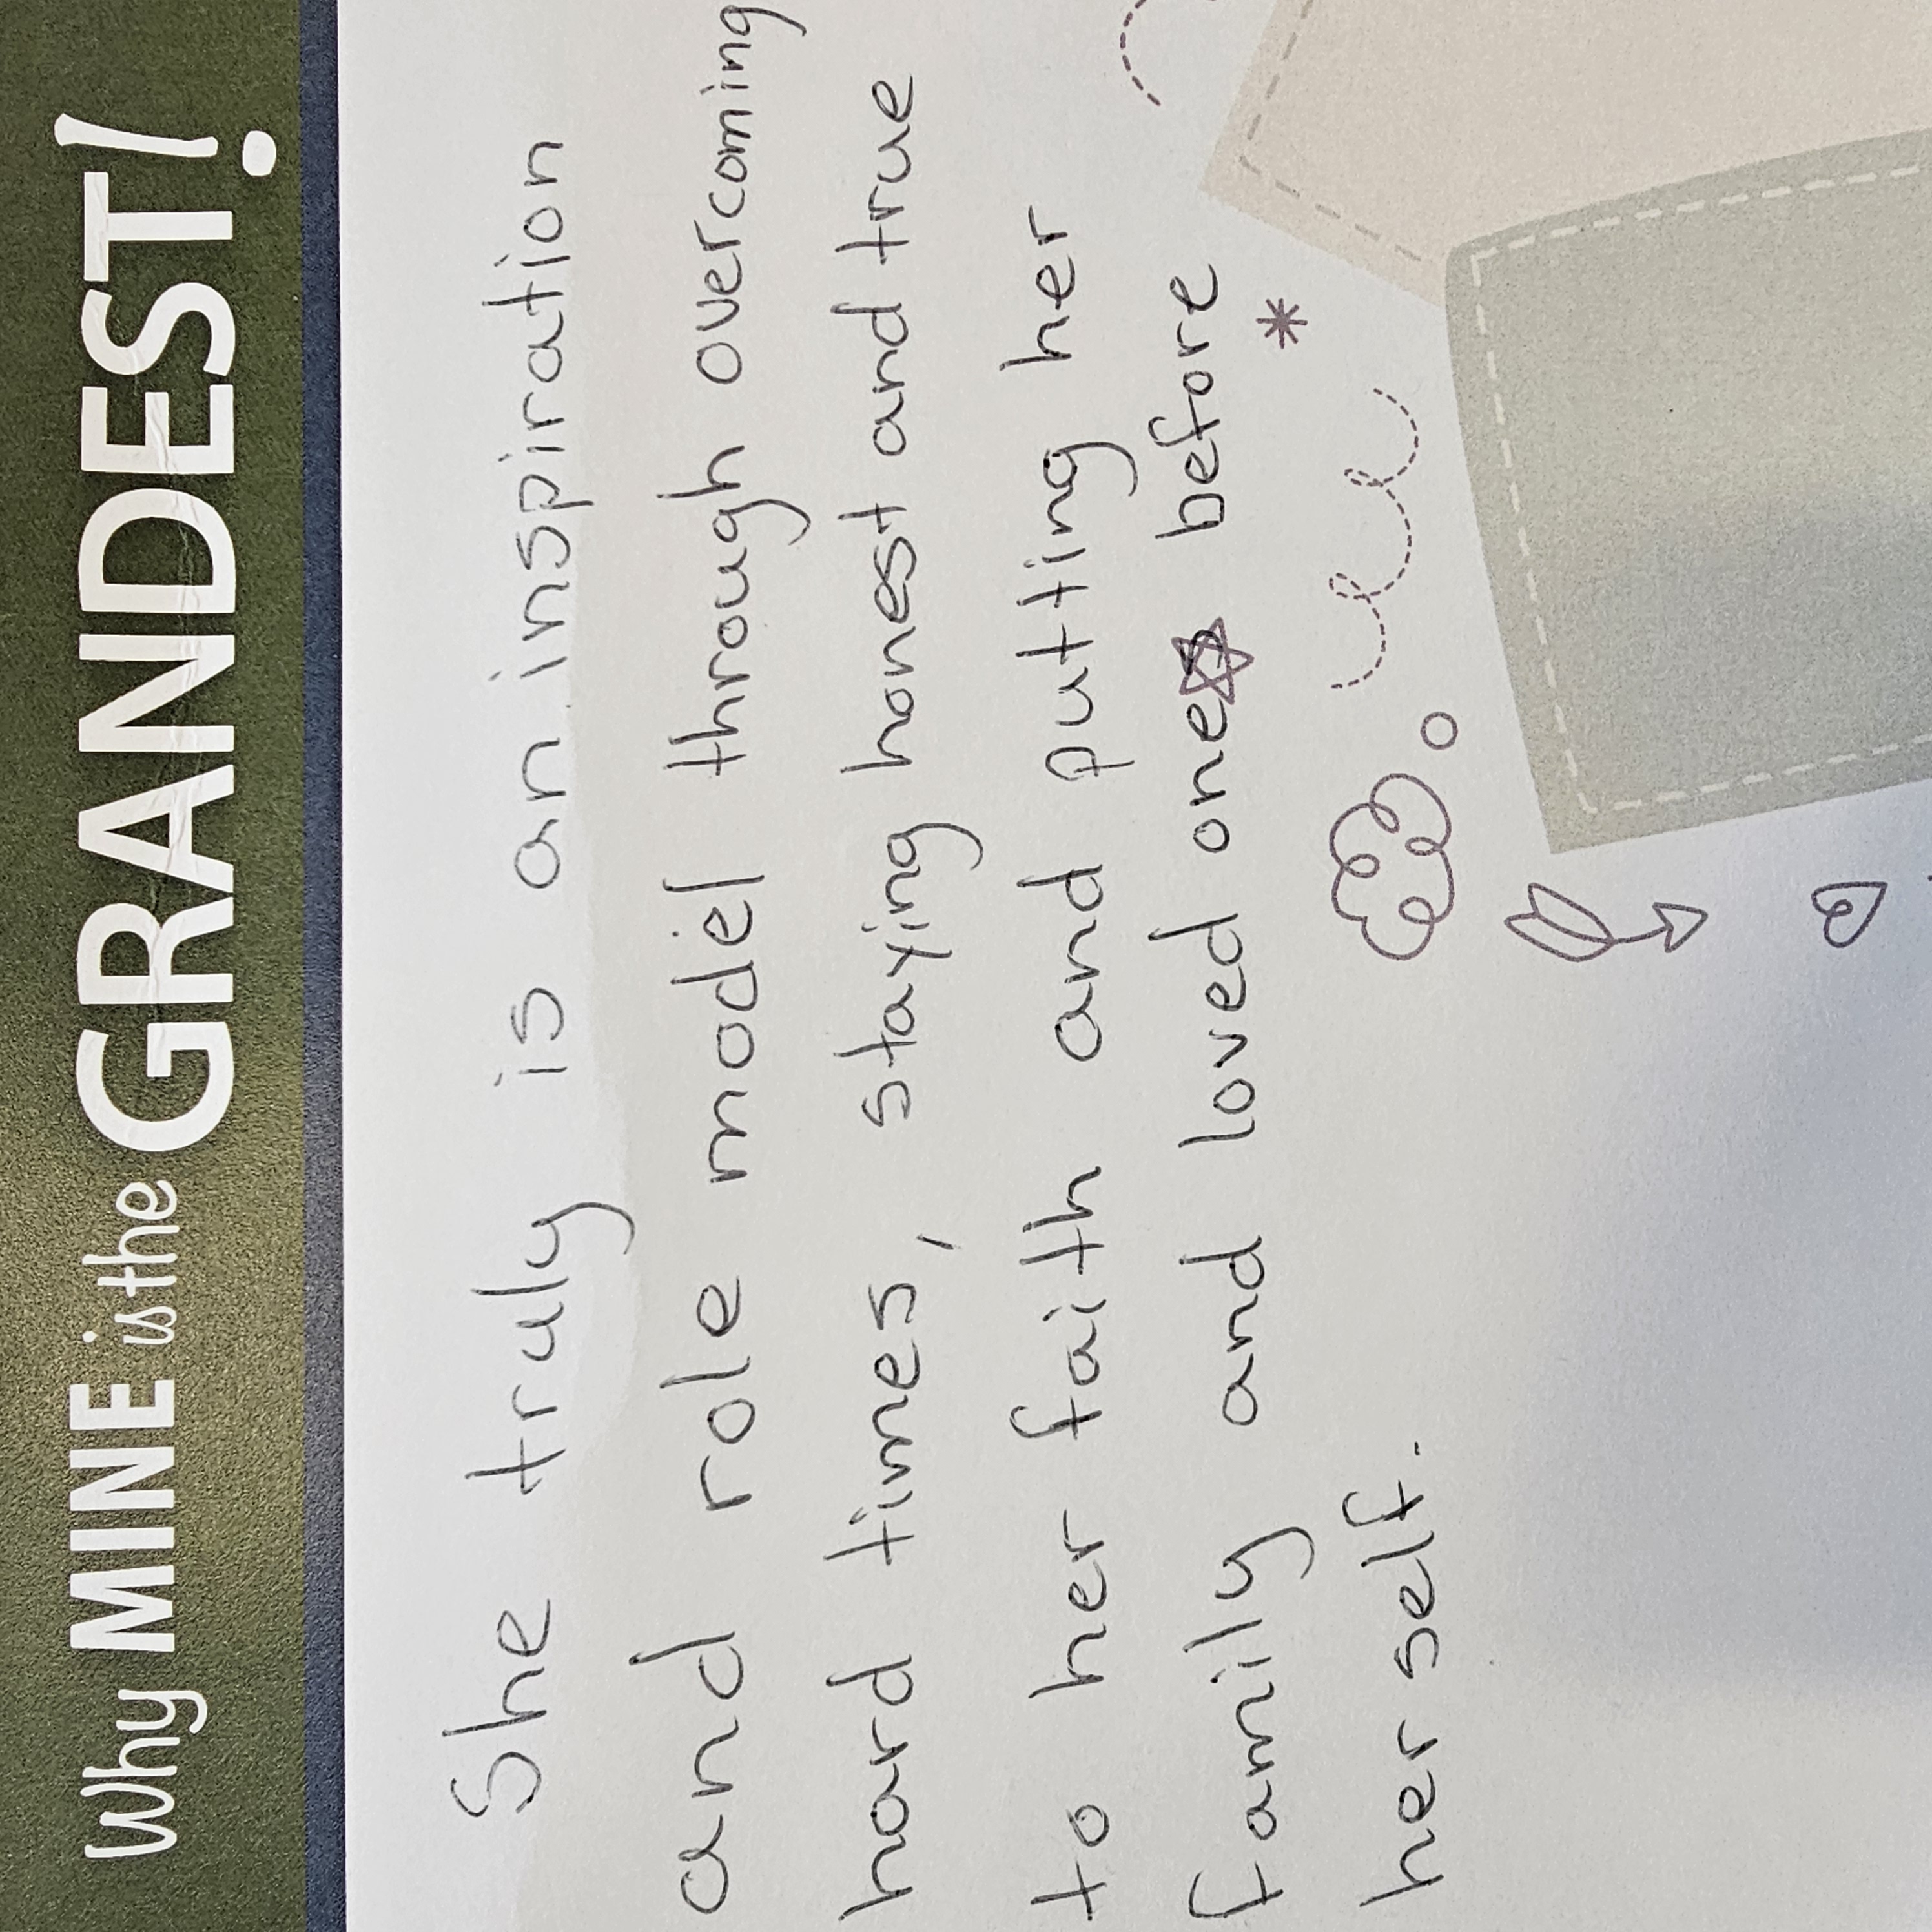 Why MINE is the GRANDEST!
She truly is an inspiration
and role model through overcoming
hard times, staying honest and true
to her faith and putting her
family and loved one before
her self.